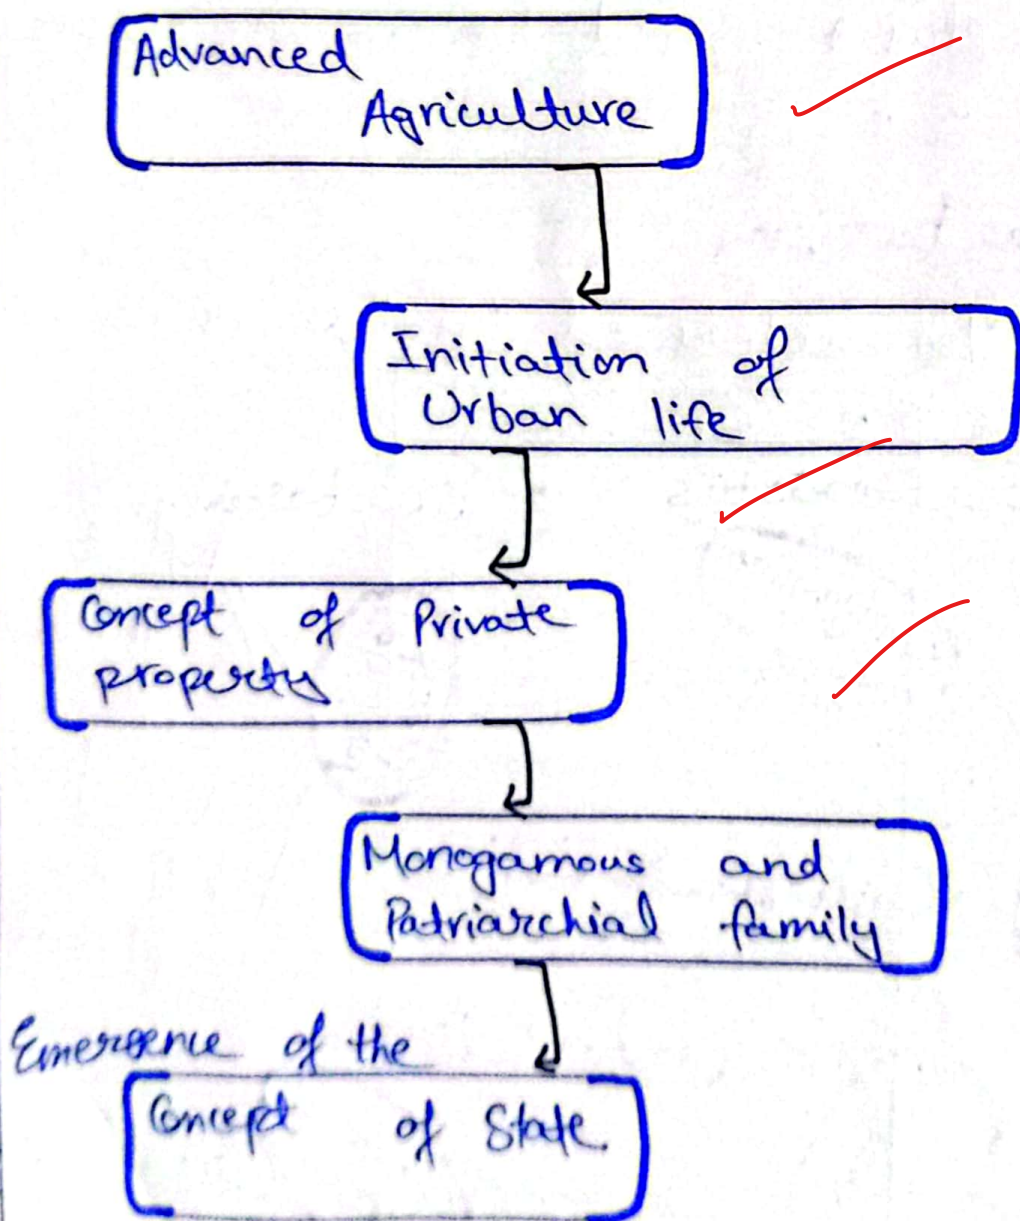 Advanced
Agriculture
Initiation of
Urban life
Concept of Private
property
Monogamous and
Patriarchial family
Emergence of the
Concept of State